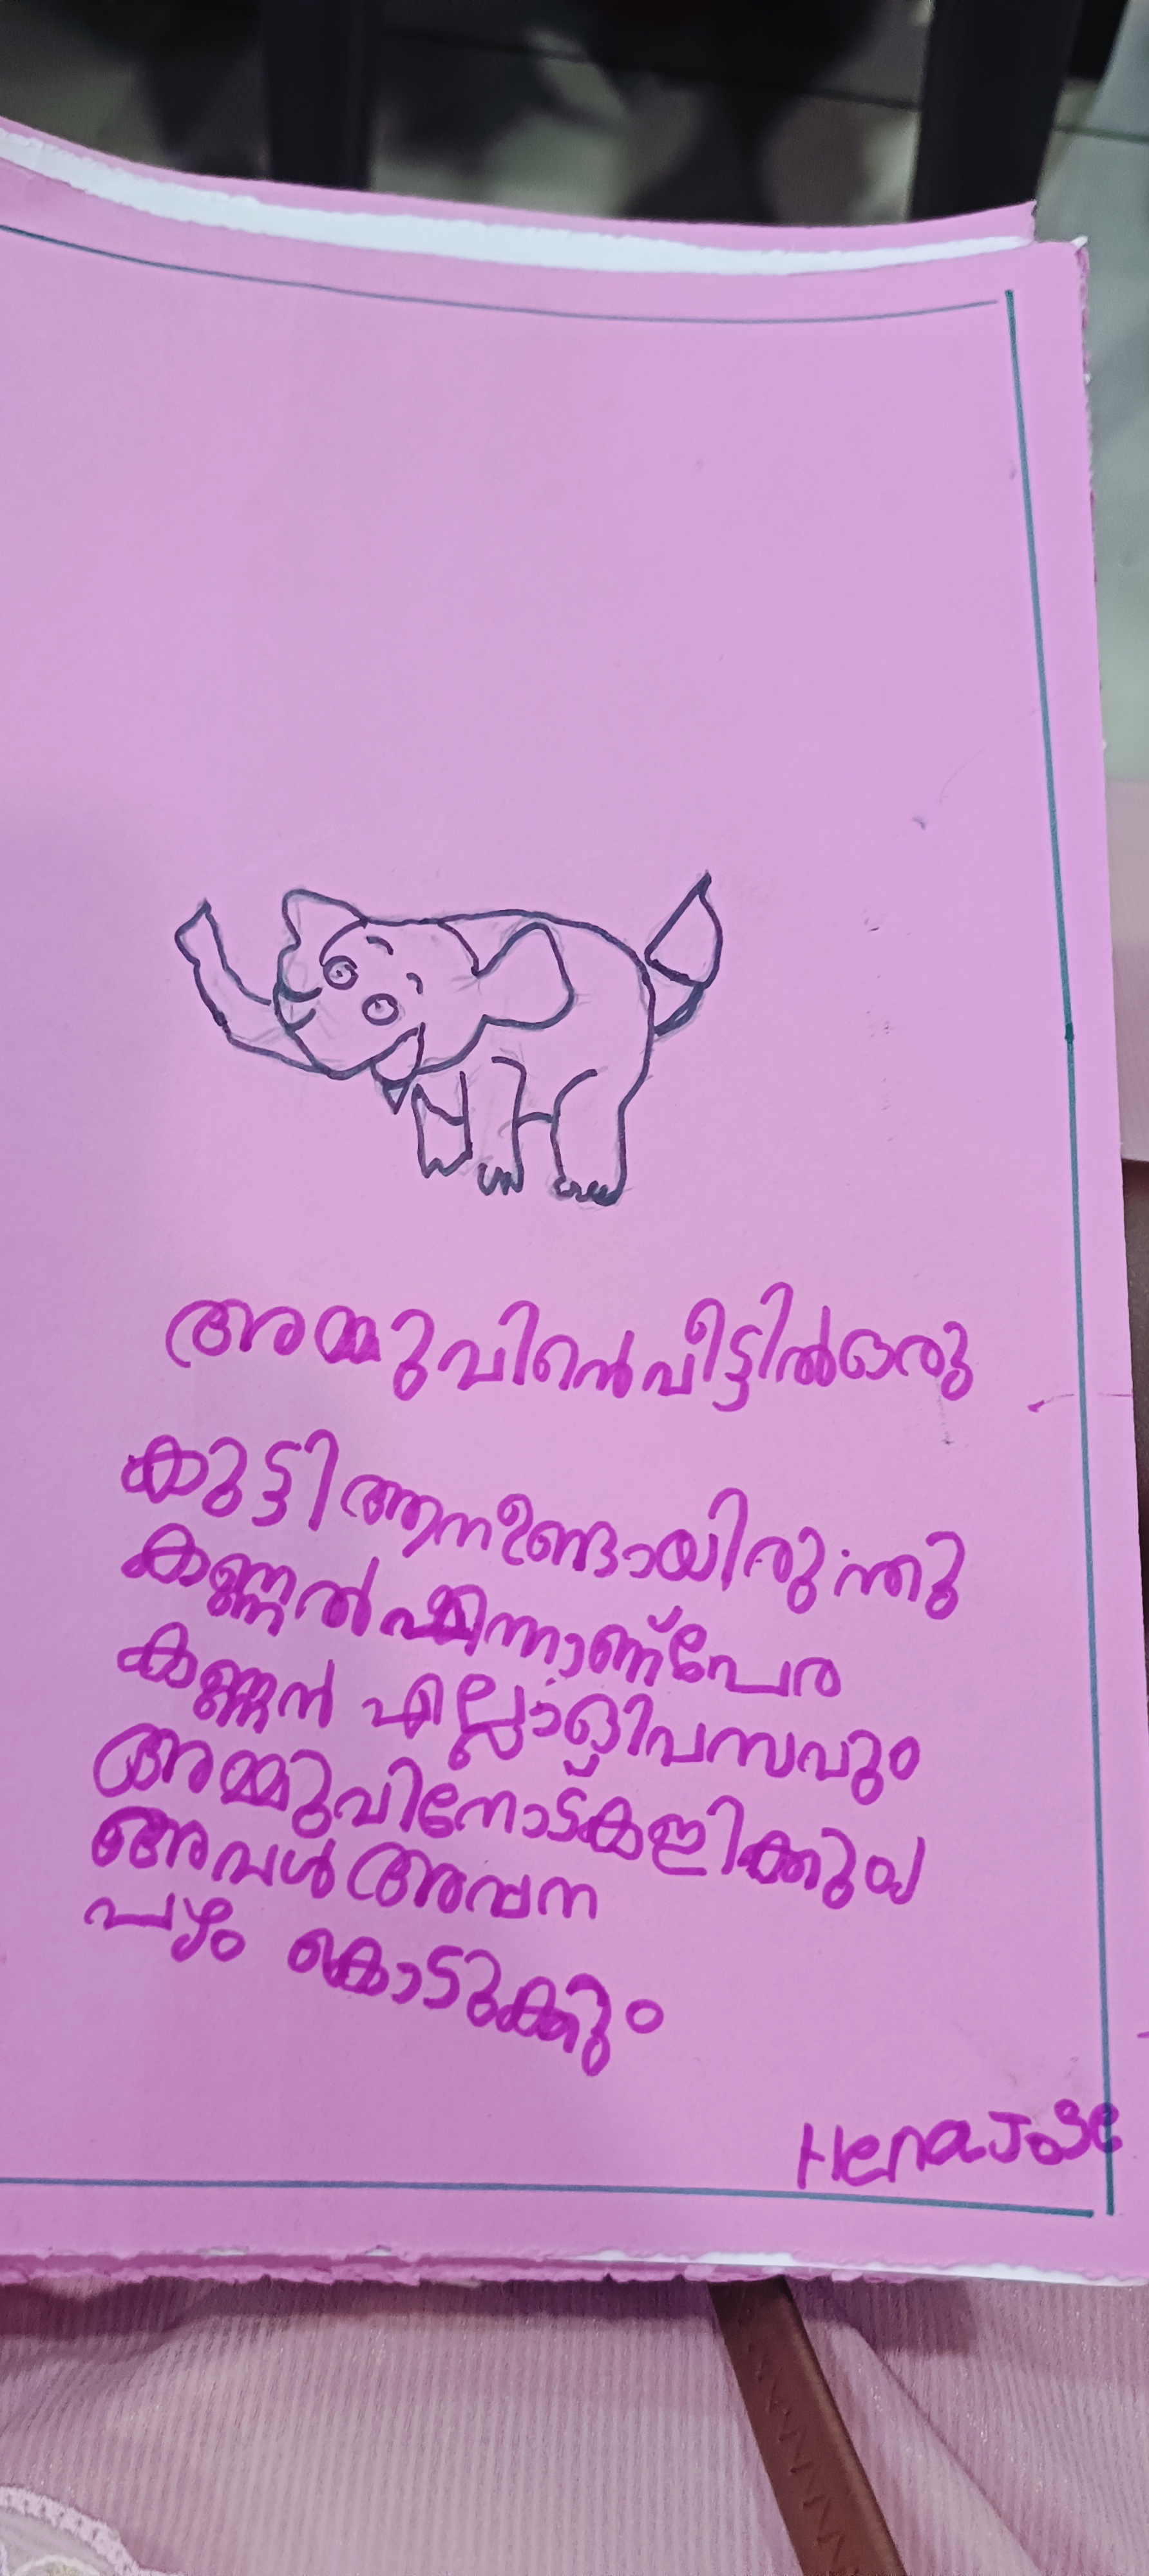 അമ്മുവിൻെവീട്ടിൽഒരു
കുട്ടിആനണ്ടായിരുന്നു
കണ്ണൽ പേര
കണ്ണൻ എല്ലാ
അമ്മുവിനോട്കളിക്കും
അവൾഅവന
പഴം കൊടുക്കും
Hena Jose